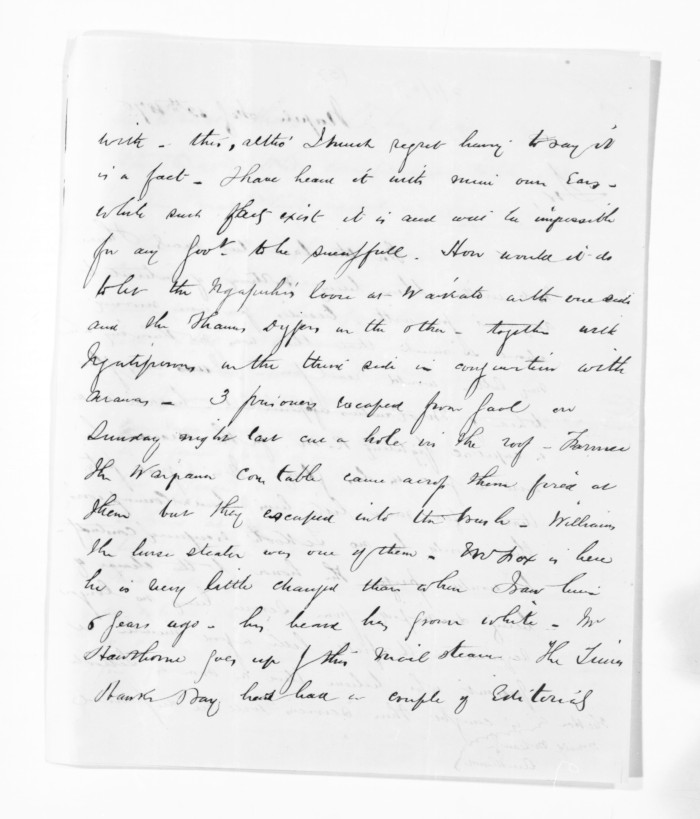 with - this, altho' I much regret having to say it
is a fact - I have heard it with mine own Ears -
while such things exist it is and will be impossible
for any Govt. to be successfull. How would it do
to let the Ngapuhi's loose at Waikato on the one side
and the Thames Diggers on the other - together with
Ngatiporou on the third side in conjunction with
Arawas - 3 prisoners escaped from Gaol on
Sunday night last cut a hole in the roof - Farmer
the Waipawa Constable came across them fired at
them but they escaped into the bush - Williams
the horse stealer was one of them - Mr Fox is here
he is very little changed than when I saw him
6 years ago - his beard has grown white - Mr
Hawthorne goes up p this Mail steamer The Times
Hawkes Bay has had a couple of Editorials